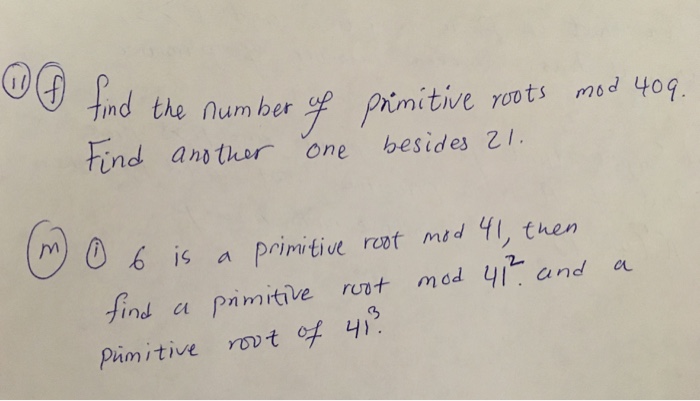 11 f find the number of primitive roots mod 409.
Find another one besides 21.
m i 6 is a primitive root mod 41, then
find a primitive root mod 41². and a
primitive root of 41³.